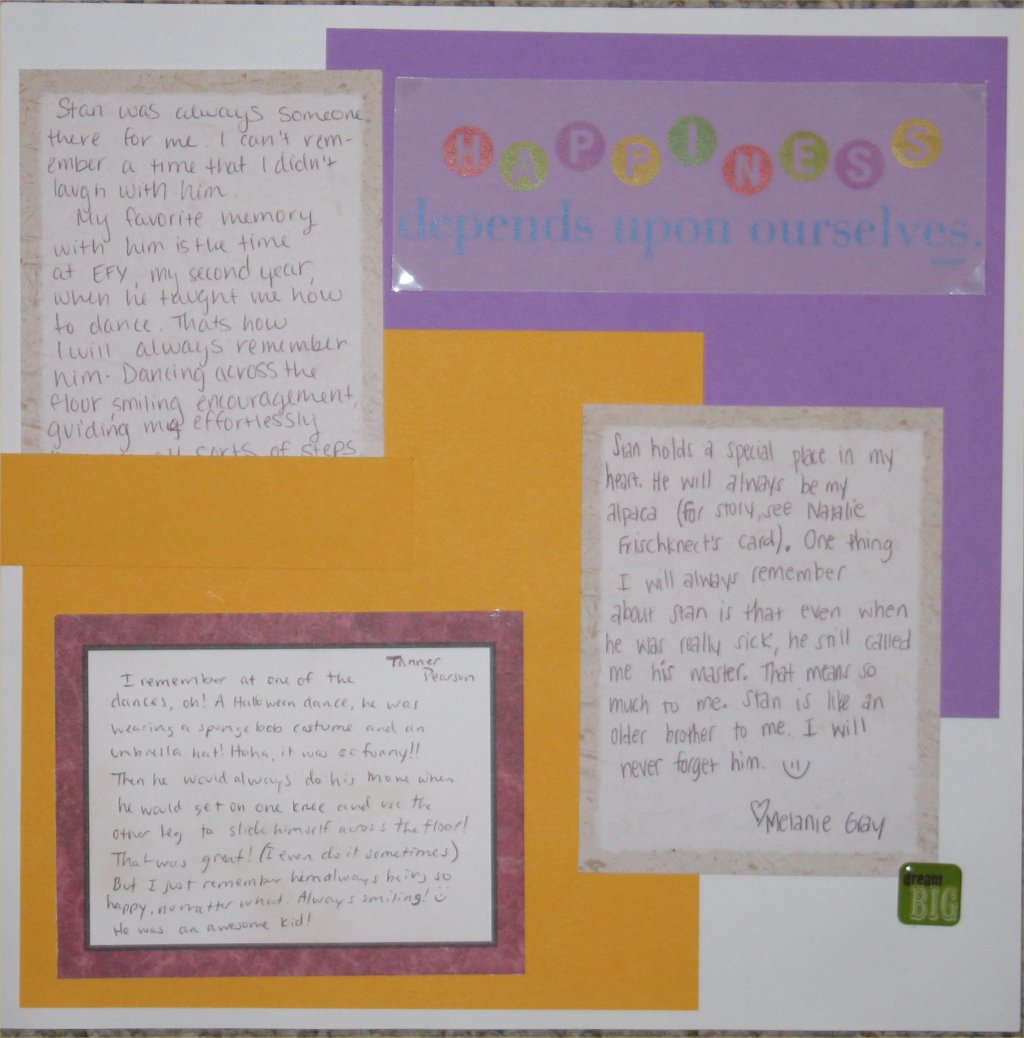 Stan was always someone
there for me. I can't rem-
ember a time that I didn't
laugh with him.
My favorite memory
with him is the time
at EFY, my second year,
when he taught me how
to dance. Thats how
I will always remember
him. Dancing across the
floor, smiling encouragement,
guiding me effortlessly
sorts of steps.
HAPPINESS
depends upon ourselves.
Stan holds a special place in my
heart. He will always be my
alpaca (for story, see Natalie
Frischknect's card). One thing
I will always remember
about Stan is that even when
he was really sick, he still called
me his master. That means so
much to me. Stan is like an
older brother to me. I will
never forget him.
♡Melanie Gray
Tanner
Pearson
I remember at one of the
dances, oh! A Halloween dance, he was
wearing a spongebob costume and an
umbrella hat! Haha, it was so funny!!
Then he would always do his move when
he would get on one knee and use the
other leg to slide himself across the floor!
That was great! (I even do it sometimes)
But I just remember him always being so
happy, no matter what. Always smiling!
He was an awesome kid!
dream
BIG